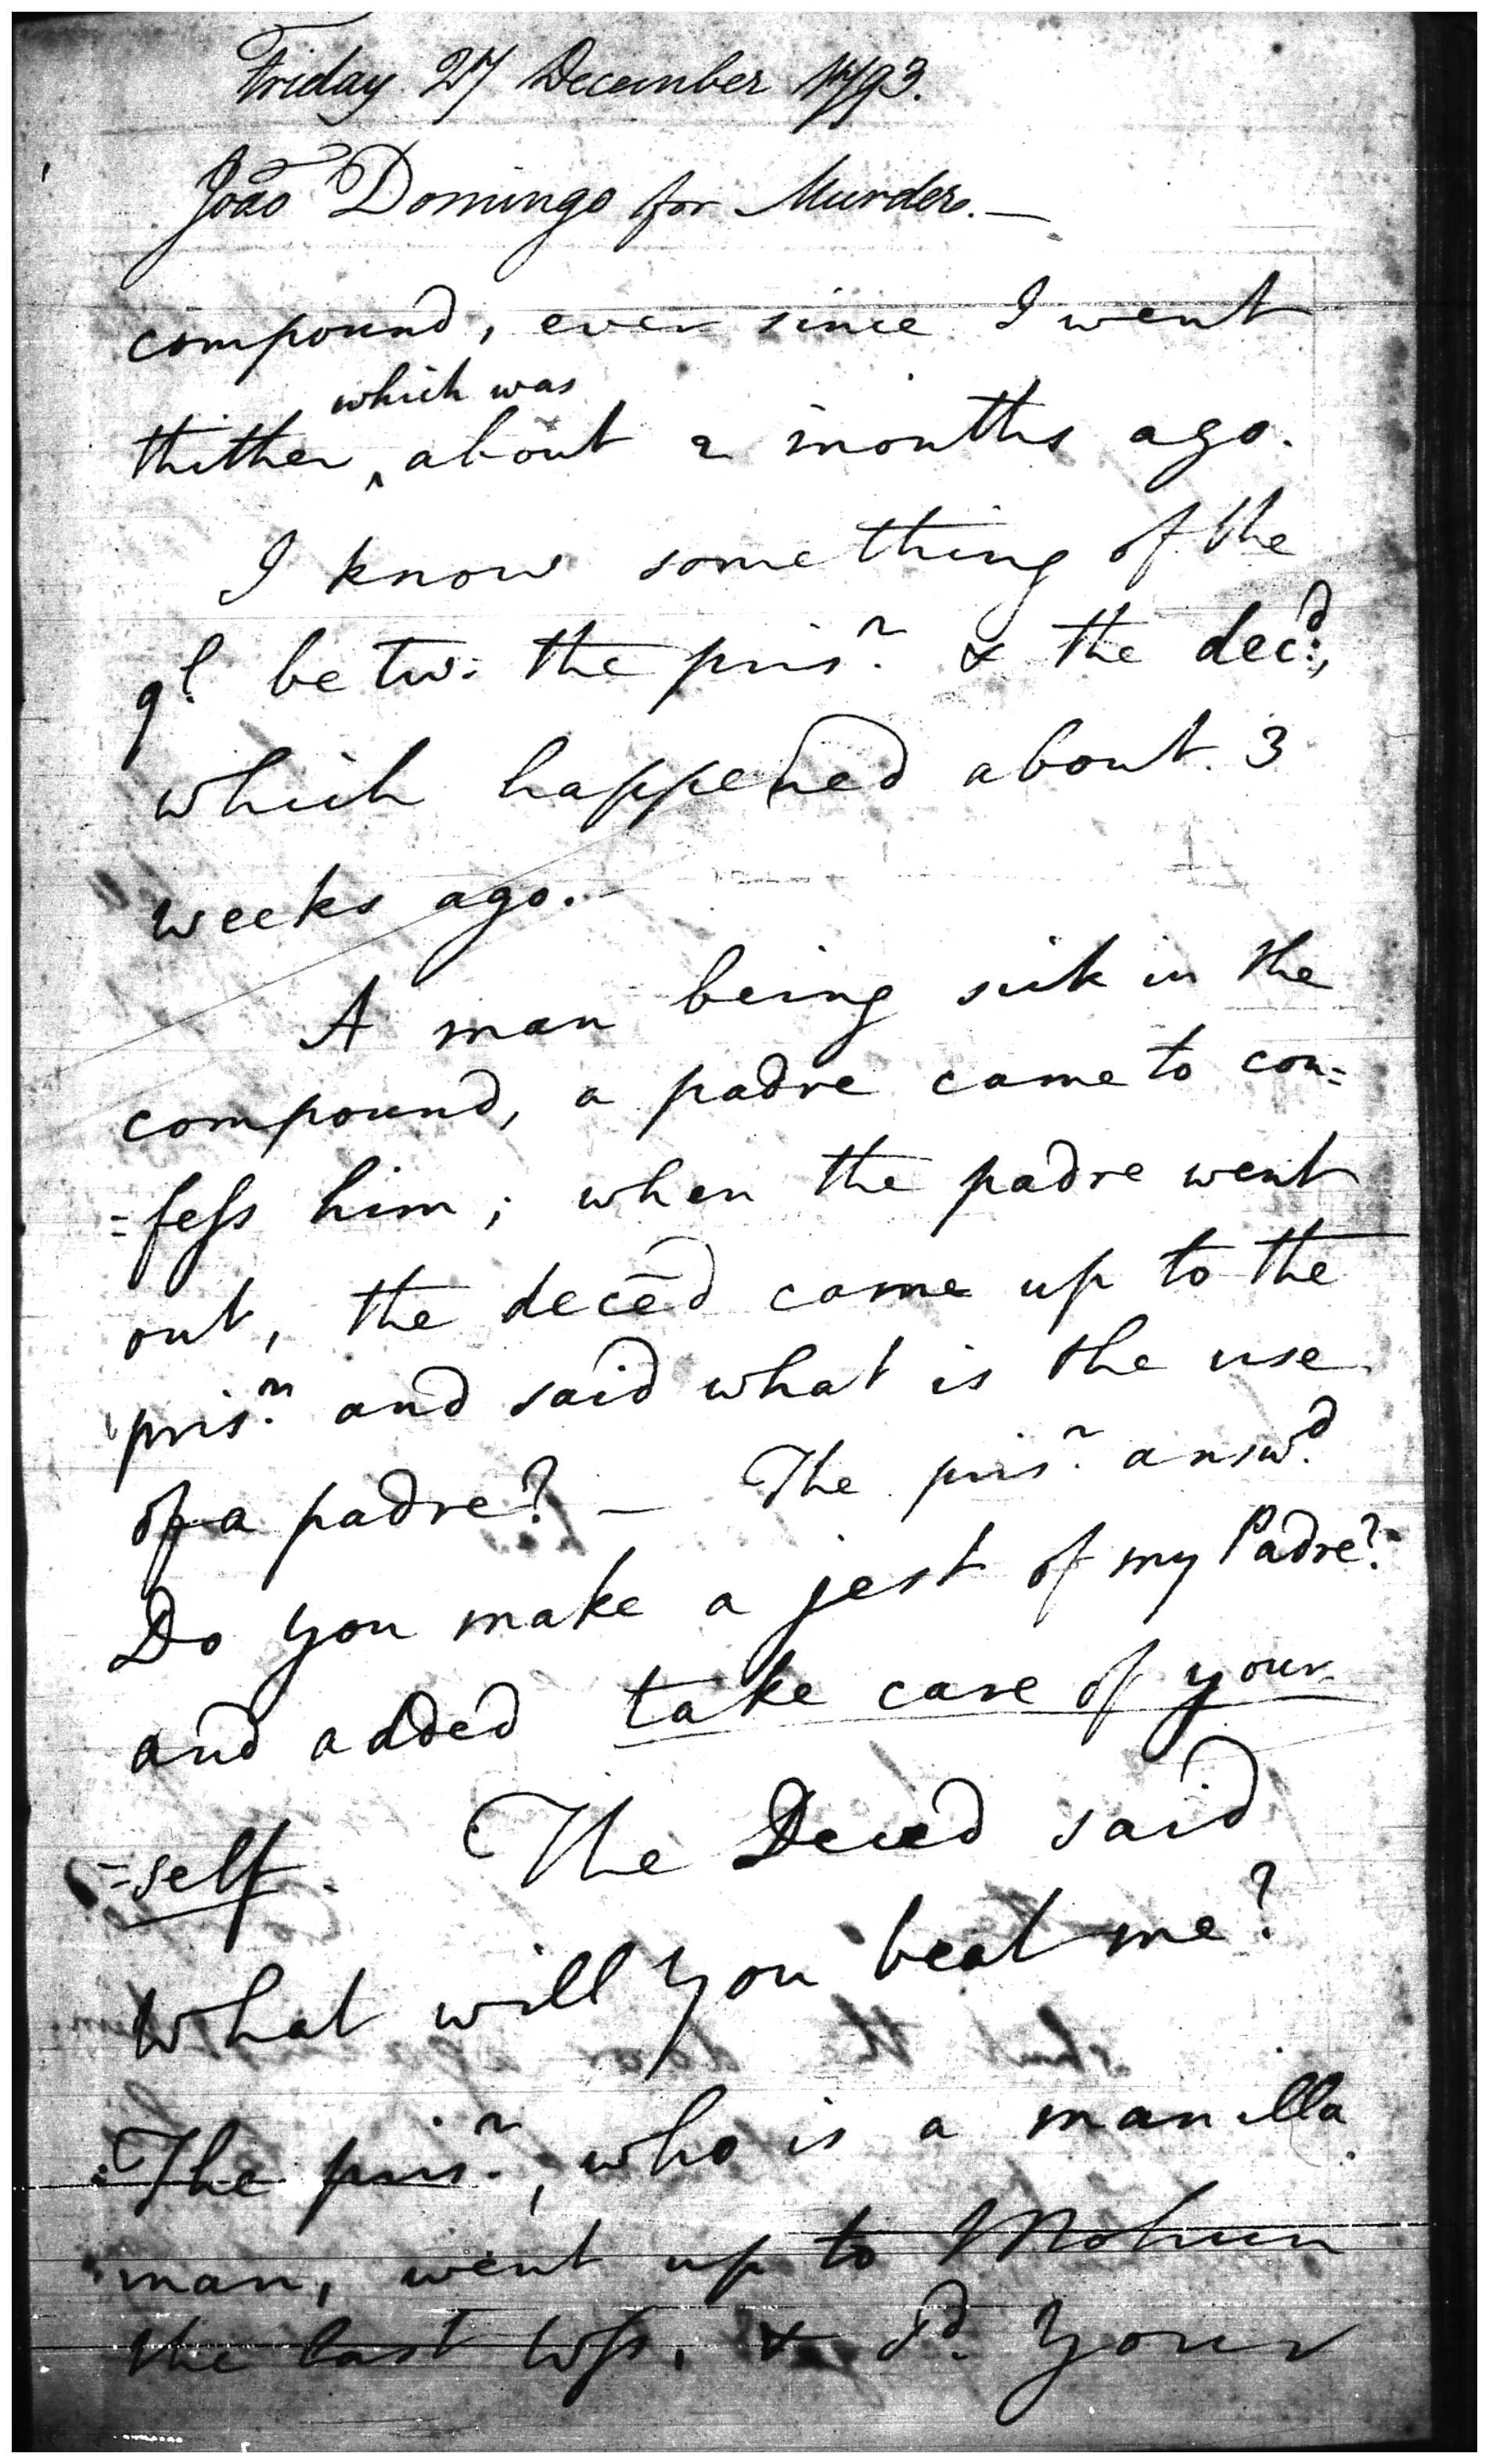 Friday 27 December 1793.
João Domingo for Murder. —
compound, ever since I went
which was
thither ‸ about 2 months ago.
I know something of the
ql. betw: the prisr. & the decd:,
which happened about 3
weeks ago.
A man being sick in the
compound, a padre came to con=
=fess him; when the padre went
out, the deced came up to the
prisr. and said what is the use
of a padre? — The prisr. answd.
Do you make a jest of my Padre?
and added take care of your
=self. The Deced said
What will you beat me?
The prisr., who is a manilla
man, went up to Mohun
the last wss, & sd. Your